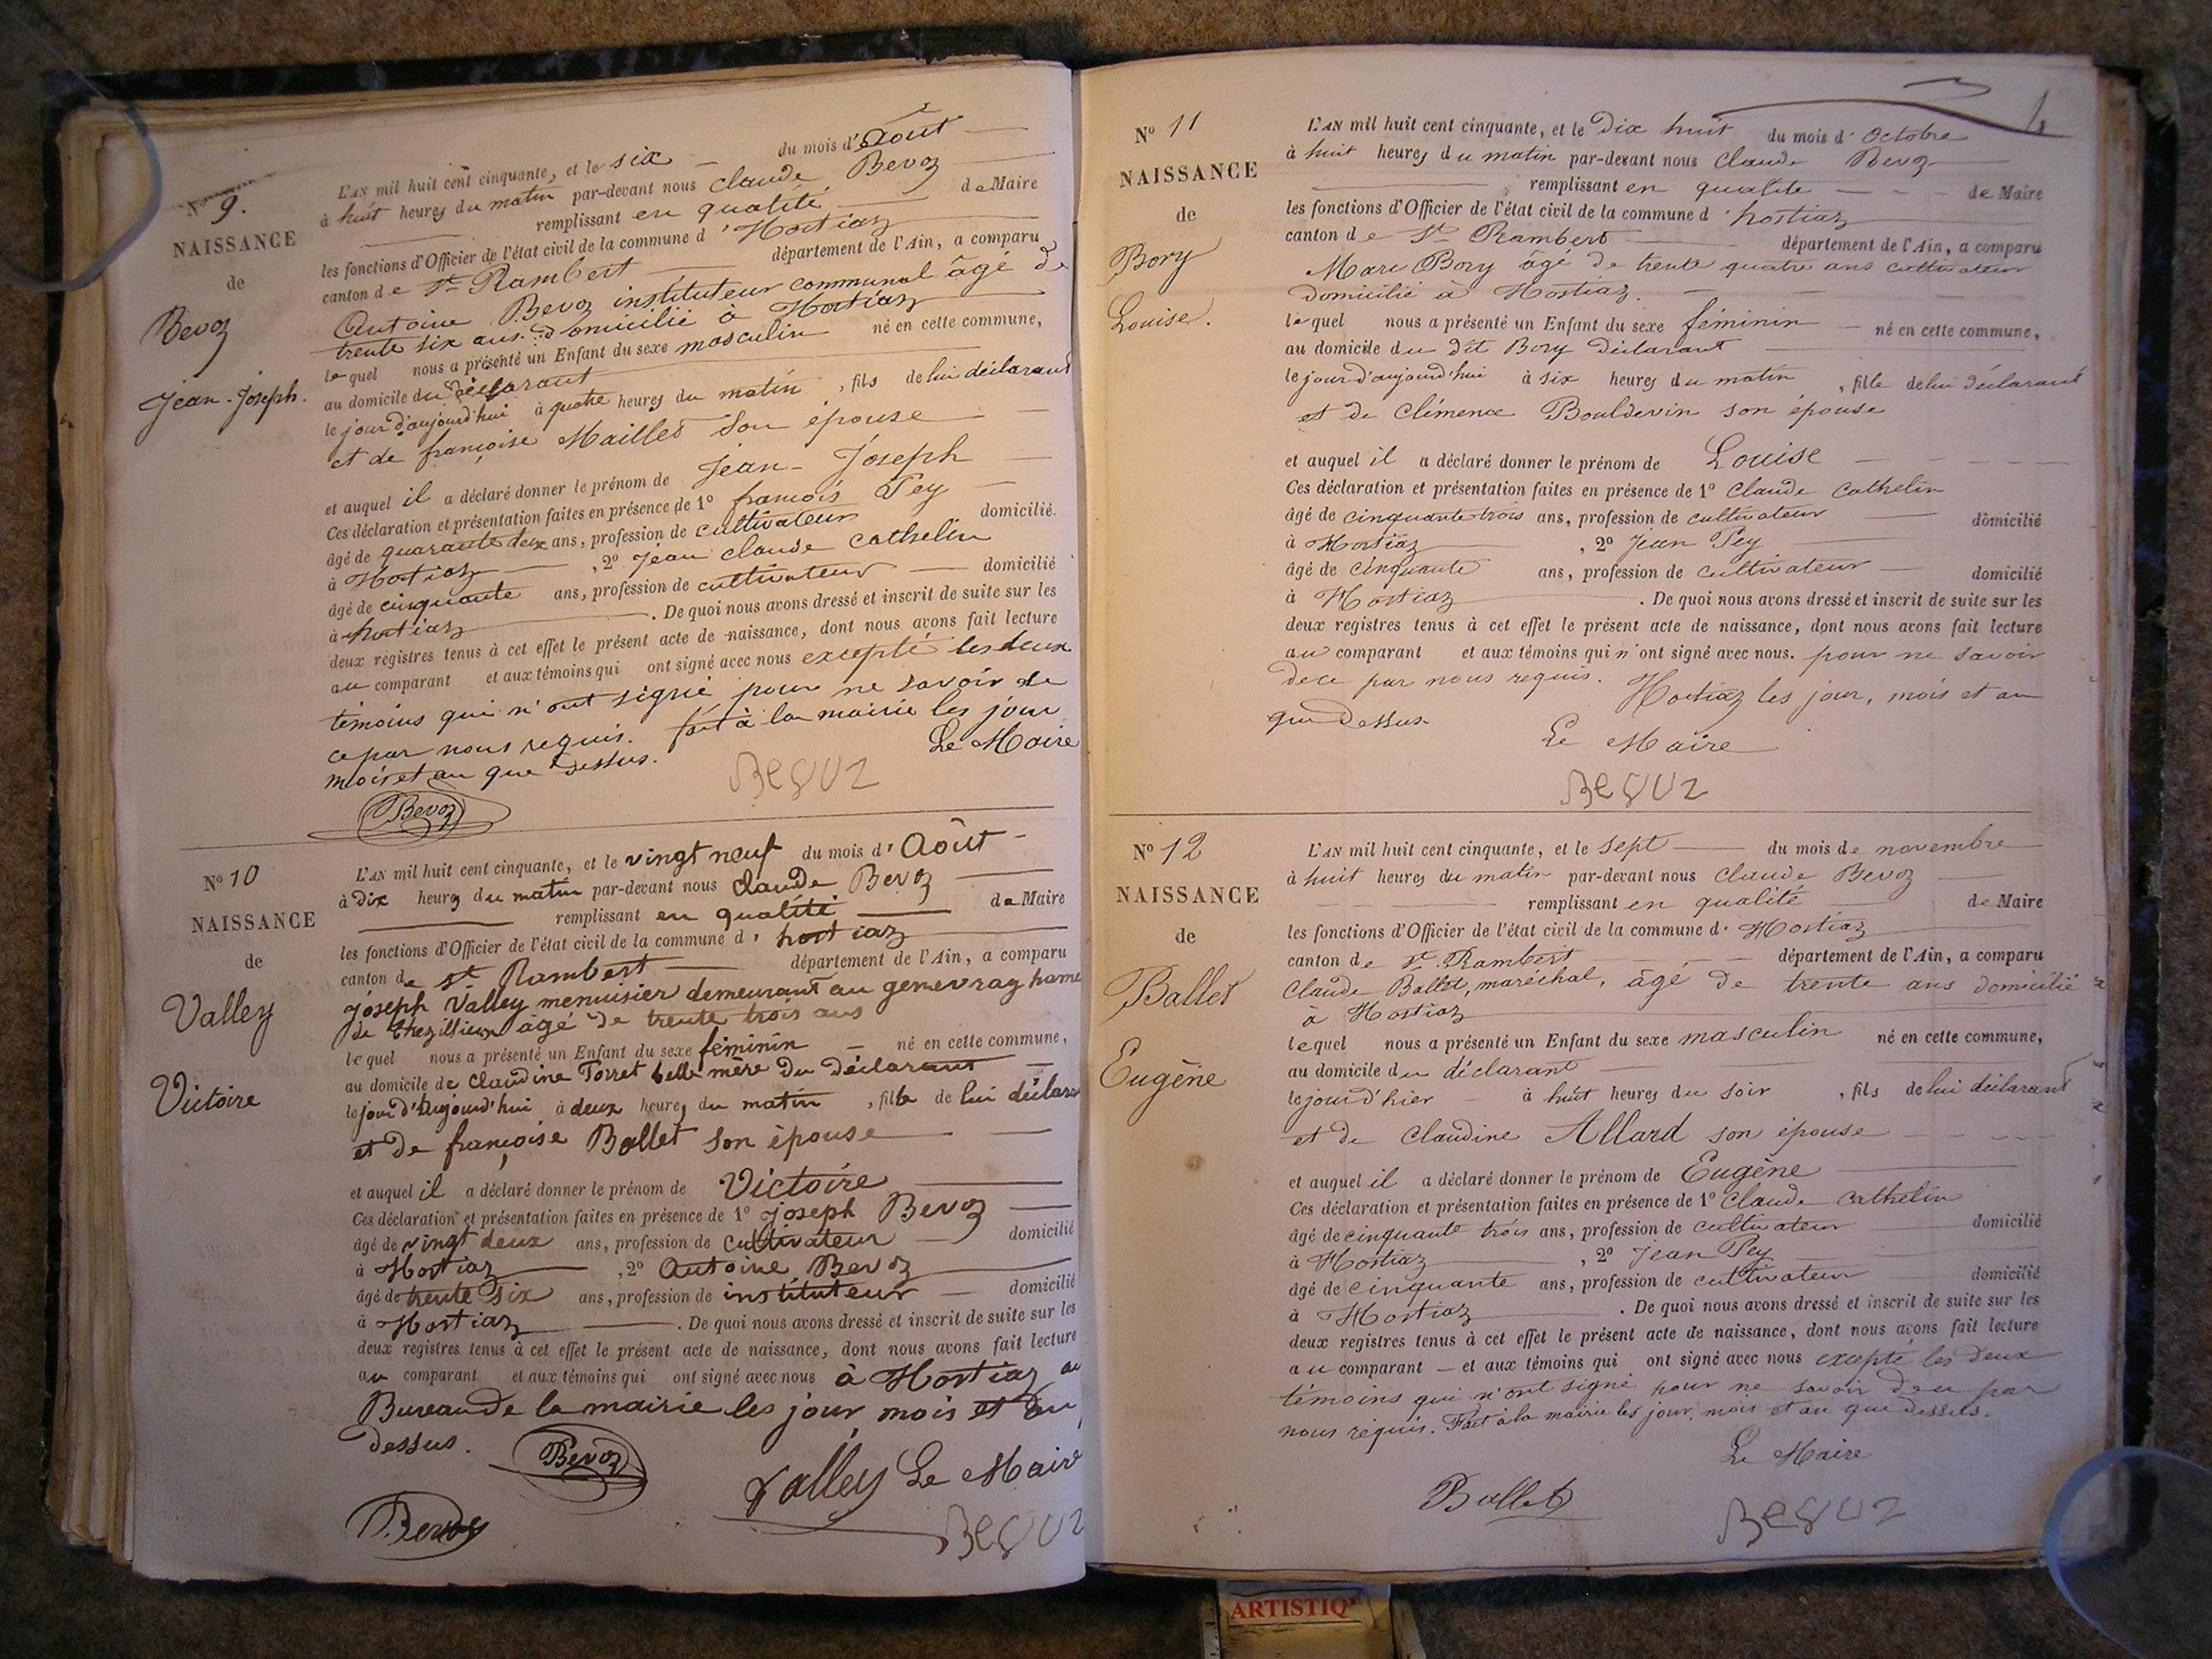 N° 9.
NAISSANCE
de
Bevoz
Jean-Joseph.
L'AN mil huit cent cinquante, et le six du mois d'Août
à huit heures du matin par-devant nous Claude Bevoz
remplissant en qualité de Maire
les fonctions d'Officier de l'état civil de la commune d'Hostiaz
canton de St Rambert département de l'Ain, a comparu
Antoine Bevoz instituteur communal âgé de
trente six ans domicilié à Hostiaz
lequel nous a présenté un Enfant du sexe masculin né en cette commune,
au domicile du déclarant
le jour d'aujourd'hui à quatre heures du matin, fils de lui déclarant
et de françoise Maillet son épouse
et auquel il a déclaré donner le prénom de Jean-Joseph
Ces déclaration et présentation faites en présence de 1° françois Pey
âgé de quarante deux ans, profession de cultivateur domicilié
à Hostiaz, 2° Jean Claude Cathelin
âgé de cinquante ans, profession de cultivateur domicilié
à hostiaz. De quoi nous avons dressé et inscrit de suite sur les
deux registres tenus à cet effet le présent acte de naissance, dont nous avons fait lecture
au comparant et aux témoins qui ont signé avec nous excepté les deux
témoins qui n'ont signé pour ne savoir de
ce par nous requis. fait à la mairie les jour
mois et an que dessus. Le Maire
Bevoz
N° 10
NAISSANCE
de
Valley
Victoire
L'AN mil huit cent cinquante, et le vingt neuf du mois d'Août
à dix heures du matin par-devant nous Claude Bevoz
remplissant en qualité de Maire
les fonctions d'Officier de l'état civil de la commune d'hostiaz
canton de St Rambert département de l'Ain, a comparu
Joseph Valley menuisier demeurant au genevray hame
de âgé de trente trois ans
lequel nous a présenté un Enfant du sexe féminin né en cette commune,
au domicile de Claudine Torret belle mère du déclarant
le jour d'aujourd'hui à deux heures du matin, fille de lui déclara
et de françoise Ballet son épouse
et auquel il a déclaré donner le prénom de Victoire
Ces déclaration et présentation faites en présence de 1° Joseph Bevoz
âgé de vingt deux ans, profession de cultivateur domicilié
à Hostiaz, 2° Antoine Bevoz
âgé de trente six ans, profession de instituteur domicilié
à Hostiaz. De quoi nous avons dressé et inscrit de suite sur les
deux registres tenus à cet effet le présent acte de naissance, dont nous avons fait lecture
au comparant et aux témoins qui ont signé avec nous à Hostiaz au
Bureau de la mairie les jour, mois et an
dessus.
Bevoz
Valley Le Maire
Bevoz
N° 11
NAISSANCE
de
Bory
Louise.
L'AN mil huit cent cinquante, et le dix huit du mois d'Octobre
à huit heures du matin par-devant nous Claude Bevoz
remplissant en qualité de Maire
les fonctions d'Officier de l'état civil de la commune d'hostiaz
canton de St Rambert département de l'Ain, a comparu
Marc Bory âgé de trente quatre ans cultivateur
domicilié à Hostiaz.
lequel nous a présenté un Enfant du sexe féminin né en cette commune,
au domicile du dit Bory déclarant
le jour d'aujourd'hui à six heures du matin, fille de lui déclarant
et de Clémence Bouldevin son épouse
et auquel il a déclaré donner le prénom de Louise
Ces déclaration et présentation faites en présence de 1° Claude Cathelin
âgé de cinquante trois ans, profession de cultivateur domicilié
à Hostiaz, 2° Jean Pey
âgé de cinquante ans, profession de cultivateur domicilié
à Hostiaz. De quoi nous avons dressé et inscrit de suite sur les
deux registres tenus à cet effet le présent acte de naissance, dont nous avons fait lecture
au comparant et aux témoins qui n'ont signé avec nous. pour ne savoir
de ce par nous requis. Hostiaz les jour, mois et an
que dessus
Le Maire
N° 12
NAISSANCE
de
Ballet
Eugène
L'AN mil huit cent cinquante, et le sept du mois de novembre
à huit heures du matin par-devant nous Claude Bevoz
remplissant en qualité de Maire
les fonctions d'Officier de l'état civil de la commune d'Hostiaz
canton de St Rambert département de l'Ain, a comparu
Claude Ballet, maréchal, âgé de trente ans domicilié
à Hostiaz
lequel nous a présenté un Enfant du sexe masculin né en cette commune,
au domicile du déclarant
le jour d'hier à huit heures du soir, fils de lui déclarant
et de Claudine Allard son épouse
et auquel il a déclaré donner le prénom de Eugène
Ces déclaration et présentation faites en présence de 1° Claude Cathelin
âgé de cinquante trois ans, profession de cultivateur domicilié
à Hostiaz, 2° Jean Pey
âgé de cinquante ans, profession de cultivateur domicilié
à Hostiaz. De quoi nous avons dressé et inscrit de suite sur les
deux registres tenus à cet effet le présent acte de naissance, dont nous avons fait lecture
au comparant et aux témoins qui ont signé avec nous excepté les deux
témoins qui n'ont signé pour ne savoir par
nous requis. Fait à la mairie les jour, mois et an que dessus.
Le Maire
Ballet
ARTISTIQ